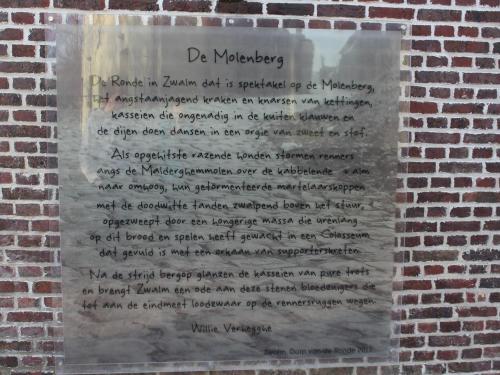 De Molenberg
De Ronde in Zwalm dat is spektakel op de Molenberg,
het angstaanjagend kraken en knarsen van kettingen,
kasseien die ongenadig in de kuiten klauwen en
de dijen doen dansen in een orgie van zweet en stof.
Als opgehitste razende honden stormen renners
langs de Malderghemmolen over de kabbelende Zwalm
naar omhoog, hun getormenteerde martelaarskoppen
met de doodwitte tanden zwalpend boven het stuur,
opgezweept door een hongerige massa die urenlang
op dit brood en spelen heeft gewacht in een Colosseum
dat gevuld is met een orkaan van supporterskreten.
Na de strijd bergop glanzen de kasseien van pure trots
en brengt Zwalm een ode aan deze stenen bloedzuigers die
tot aan de eindmeet loodzwaar op de rennersruggen wegen.
Willie Verhegghe
Zwalm, Dorp van de Ronde